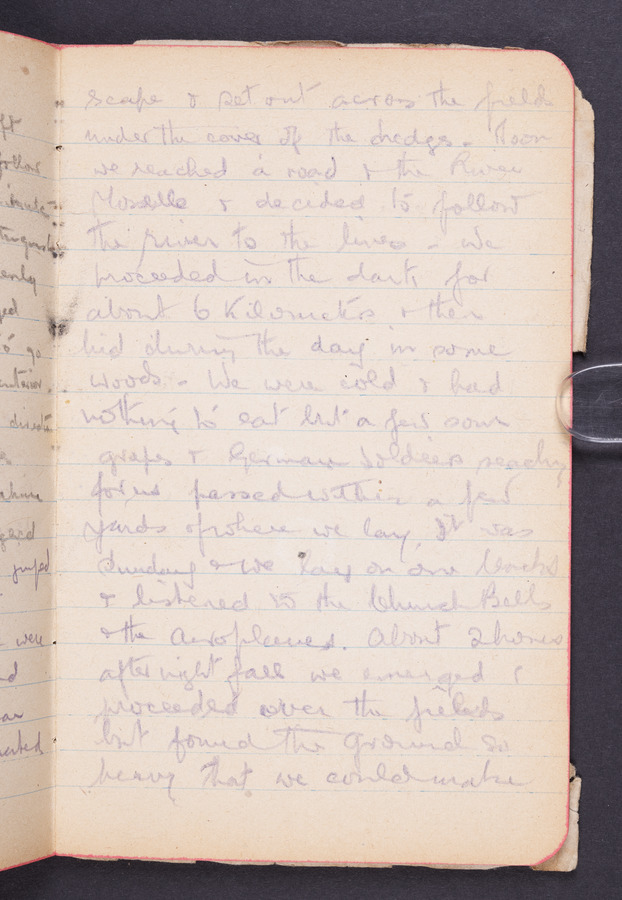 scape & set out across the fields
under the cover of the hedges - Soon
we reached a road & the River
Moselle & decided to follow
the river to the lines - We
proceeded in the dark for
about 6 Kilometers & then
hid during the day in some
woods - We were cold & had
nothing to eat but a few sour
grapes & German Soldiers
for us passed within a few
yards of where we lay. It was
Sunday & we lay on our backs
& listened to the Church Bells
& the aeroplanes. About 2 hours
after night fall we emerged &
proceeded over the fields
but found the ground so
heavy that we could make